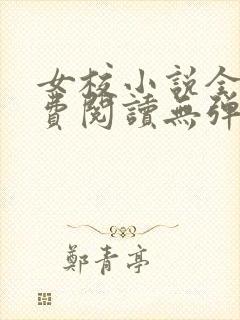 女校小說全
費閱讀無彈
鄭青亭